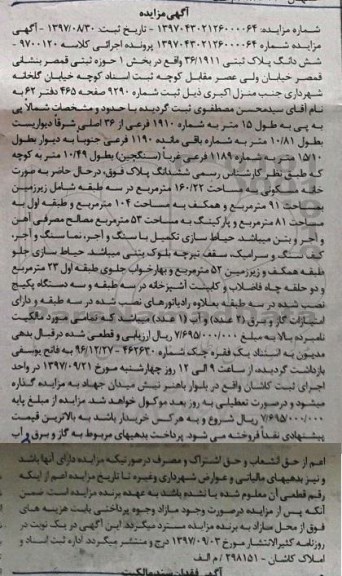 آگهی مزایده
شماره مزایده: ۱۳۹۷۰۴۳۰۲۱۲۶۰۰۰۰۶۴ - تاریخ ثبت: ۱۳۹۷/۰۸/۳۰ - آگهی
مزایده شماره ۱۳۹۷۰۴۳۰۲۱۲۶۰۰۰۰۶۴ پرونده اجرائی کلاسه ۹۷۰۰۱۲۰ -
شش دانگ پلاک ثبتی ۳۶/۱۹۱۱ واقع در بخش ۱ حوزه ثبتی قمصر بنشانی
قمصر خیابان ولی عصر مقابل کوچه ثبت اسناد کوچه خیابان گلخانه
شهرداری جنب منزل اکبری ذیل ثبت شماره ۹۲۹۰ صفحه ۴۶۵ دفتر ۶۲ به
نام آقای سیدمحسن مصطفوی ثبت گردیده با حدود و مشخصات شمالا پی
به پی به طول ۱۵ متر به شماره ۱۹۱۰ فرعی از ۳۶ اصلی شرقاً دیواریست
بطول ۱۰/۸۱ متر به شماره باقی مانده ۱۱۹۰ فرعی جنوباً به دیوار بطول
۱۵/۱۰ متر به شماره ۱۱۸۹ فرعی غرباً (سنگچین) بطول ۱۰/۴۹ متر به کوچه
که طبق نظر کارشناس رسمی ششدانگ پلاک فوق، درحال حاضر به صورت
خانه مسکونی به مساحت ۱۶۰/۲۲ مترمربع در سه طبقه شامل زیرزمین
مساحت ۹۱ مترمربع و همکف به مساحت ۱۰۴ مترمربع و طبقه اول به
مساحت ۸۱ مترمربع و پارکینگ به مساحت ۵۳ مترمربع مصالح مصرفی آهن
و آجر و بتن میباشد حیاط سازی تکمیل با سنگ و آجر، نما سنگ و آجر،
کف سنگ و سرامیک، سقف تیرچه بلوک بتنی میباشد حیاط سازی جلو
طبقه همکف و زیرزمین ۵۲ مترمربع و بهارخواب جلوی طبقه اول ۲۳ مترمربع
و دو حلقه چاه فاضلاب و کابینت آشپزخانه در سه طبقه و سه دستگاه پکیج
نصب شده در سه طبقه بعلاوه رادیاتورهای نصب شده در سه طبقه و دارای
امتیازات گاز و برق (۲ عدد) و آب (۱ عدد) میباشد که تمامی مورد مالکیت
نامبرده بالا به مبلغ ۷/۶۹۵/۰۰۰/۰۰۰ ریال ارزیابی و قطعی شده درقبال بدهی
مدیون به استناد یک فقره چک شماره ۴۶۲۶۳۰ - ۹۶/۱۲/۲۷ به فاتح یوسفی
بازداشت گردیده، از ساعت ۹ الی ۱۲ روز چهارشنبه مورخ ۱۳۹۷/۰۹/۲۱ در واحد
اجرای ثبت کاشان واقع در بلوار باهنر نبش میدان جهاد به مزایده گذارده
میشود و درصورت تعطیلی به روز بعد موکول خواهد شد. مزایده از مبلغ پایه
۷/۶۹۵/۰۰۰/۰۰۰ ریال شروع و به هر کس خریدار باشد به بالاترین قیمت
پیشنهادی نقداً فروخته می شود. پرداخت بدهیهای مربوط به گاز و برق و آب
اعم از حق انشعاب و حق اشتراک و مصرف درصورتیکه مزایده دارای آنها باشد
و نیز بدهیهای مالیاتی و عوارض شهرداری وغیره تا تاریخ مزایده اعم از اینکه
رقم قطعی آن معلوم شده یا نشده باشد به عهده برنده مزایده است. ضمن
آنکه پس از مزایده درصورت وجود مازاد وجوه پرداختی بابت هزینه های
فوق از محل مازاد به برنده مزایده مسترد میگردد. این آگهی در یک نوبت در
روزنامه کثیرالانتشار مورخ ۱۳۹۷/۰۹/۰۳ درج و منتشر میگردد اداره ثبت اسناد و
املاک کاشان - ۲۹۸۱۵۱ / م الف
آگهی فقدان سند مالکیت